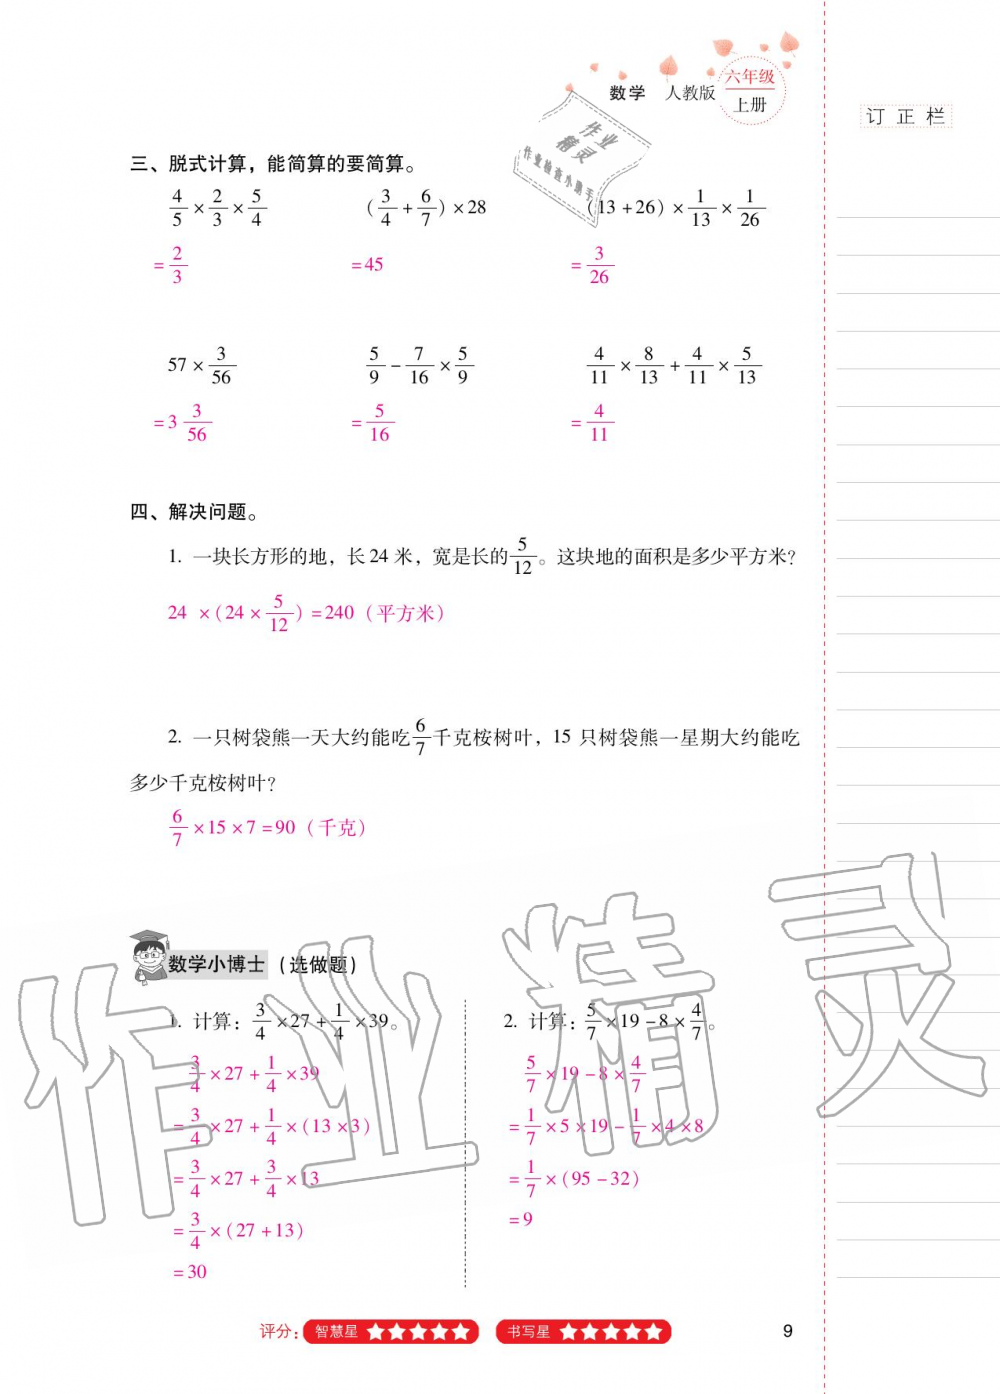 数学 人教版 六年级
上册
订正栏
作业
精灵
作业检查小助手
三、脱式计算，能简算的要简算。
4/5×2/3×5/4 (3/4+6/7)×28 (13+26)×1/13×1/26
=2/3 =45 =3/26
57×3/56 5/9-7/16×5/9 4/11×8/13+4/11×5/13
=3 3/56 =5/16 =4/11
四、解决问题。
1. 一块长方形的地，长24米，宽是长的5/12。这块地的面积是多少平方米？
24 ×(24×5/12)=240（平方米）
2. 一只树袋熊一天大约能吃6/7千克桉树叶，15只树袋熊一星期大约能吃
多少千克桉树叶？
6/7×15×7=90（千克）
数学小博士（选做题）
1. 计算：3/4×27+1/4×39。
3/4×27+1/4×39
=3/4×27+1/4×(13×3)
=3/4×27+3/4×13
=3/4×(27+13)
=30
2. 计算：5/7×19-8×4/7。
5/7×19-8×4/7
=1/7×5×19-1/7×4×8
=1/7×(95-32)
=9
作业精灵
评分：智慧星★★★★★ 书写星★★★★★
9